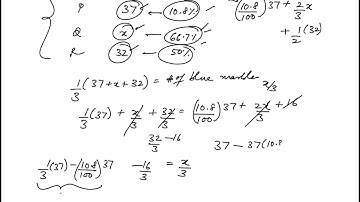 P 37 ← 10.8% (10.8/100) 37 + 2/3 x
Q x ← 66.7% + 1/2 (32)
R 32 ← 50%
1/3 (37 + x + 32) = # of blue marble
x/3
1/3 (37) + x/3 + 32/3 = (10.8/100) 37 + 2x/3 + 16
32/3 - 16 37 - 37(10.8
1/3 (37) - (10.8/100) 37 -16/3 = x/3